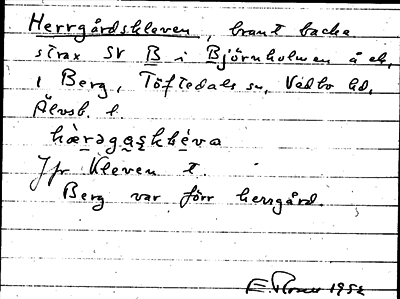 Herrgårdskleven, brant backe
strax SV B i Björnholmen å ek.
i Berg, Töftedals sn, Vedbo hd,
Älvsb. l.
hæ̀rəgaşkḷéva
Jfr Kleven t.
Berg var förr herrgård.
1952